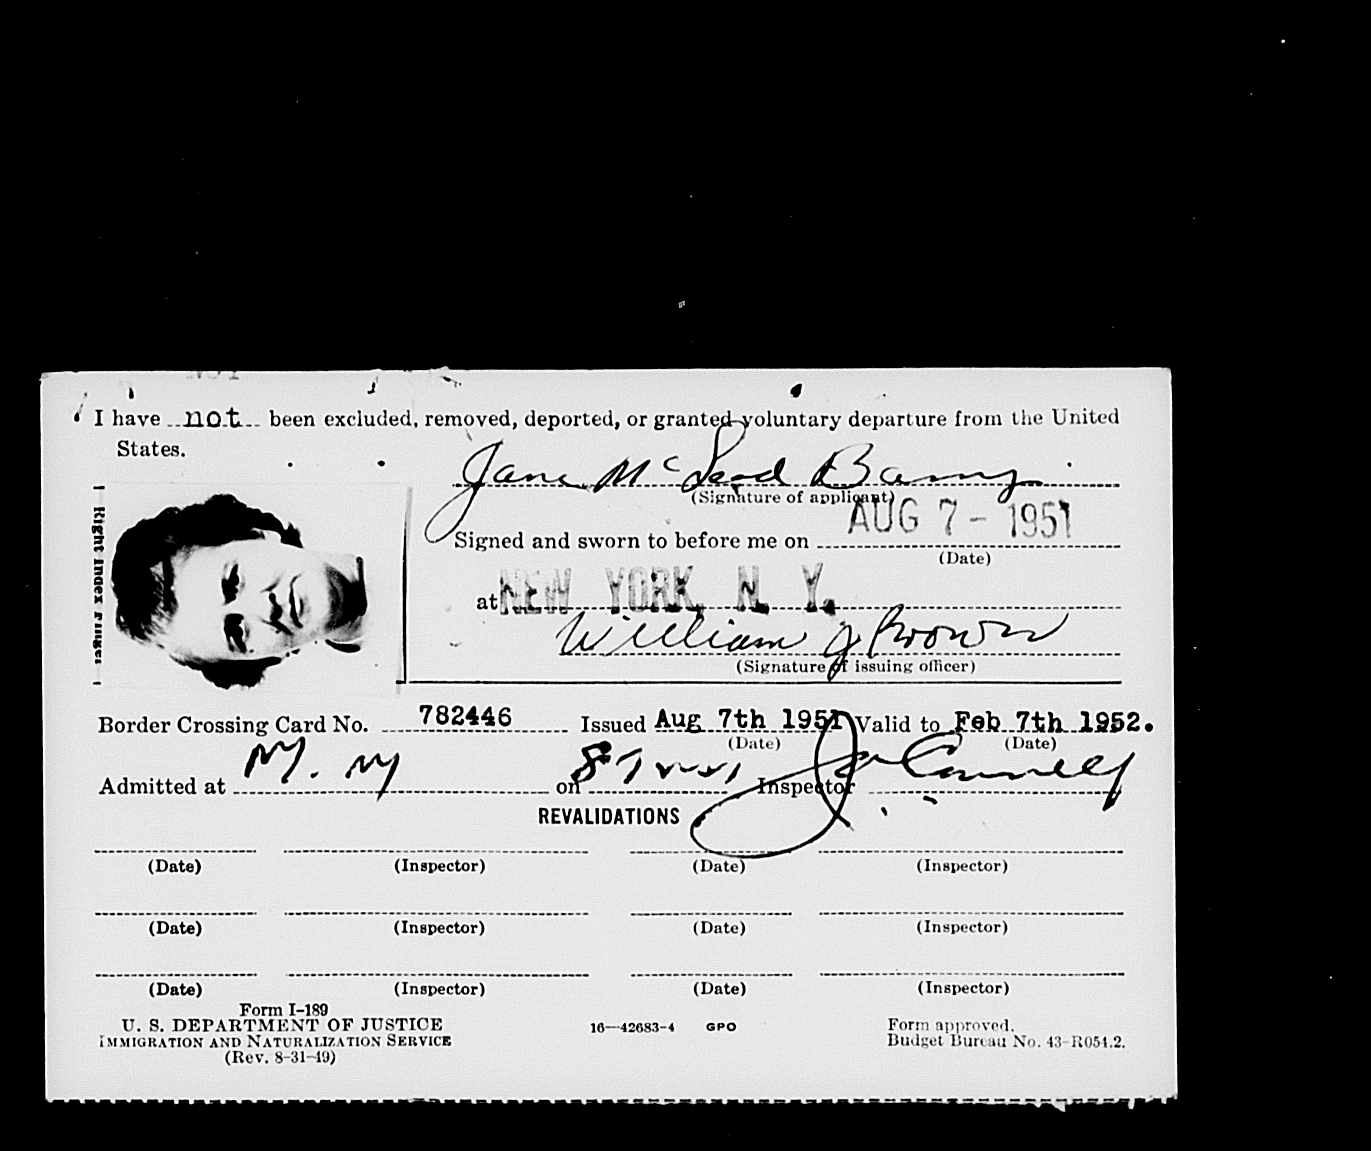 I have not been excluded, removed, deported, or granted voluntary departure from the United
States.
Jane McLeod Barry
(Signature of applicant)
AUG 7 - 1951
Signed and sworn to before me on
(Date)
at NEW YORK, N. Y.
William J Brown
(Signature of issuing officer)
Right Index Finger
Border Crossing Card No. 782446 Issued Aug 7th 1951 Valid to Feb 7th 1952.
(Date) (Date)
Admitted at NY. NY on Inspector
REVALIDATIONS
(Date) (Inspector) (Date) (Inspector)
(Date) (Inspector) (Date) (Inspector)
(Date) (Inspector) (Date) (Inspector)
Form I-189
U. S. DEPARTMENT OF JUSTICE
IMMIGRATION AND NATURALIZATION SERVICE
(Rev. 8-31-49)
16—42683-4 GPO
Form approved.
Budget Bureau No. 43-R054.2.